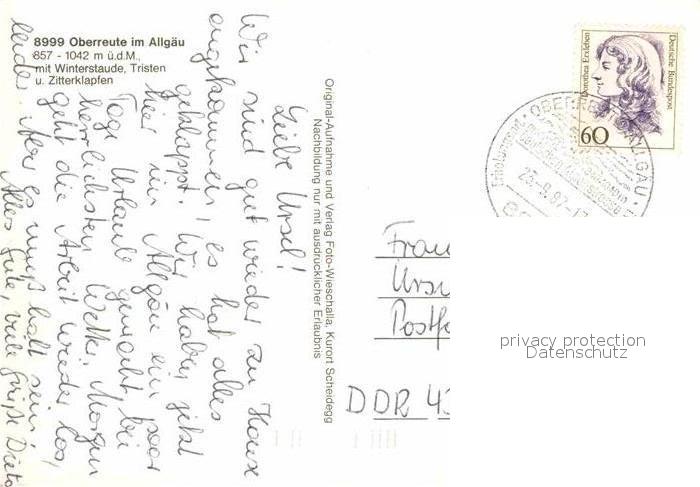 8999 Oberreute im Allgäu
857 - 1042 m ü.d.M.,
mit Winterstaude, Tristen
u. Zitterklapfen
Liebe Ursel!
Wir sind gut wieder zu Hause
angekommen! es hat alles
geklappt. Wir haben jetzt
hier im Allgäu ein paar
Tage Urlaub gemacht, bei
herrlichsten Wetter. Morgen
geht die Arbeit wieder los,
leider. Aber es muß halt sein.
Alles Gute, viele Grüße Dieter
Original-Aufnahme und Verlag Foto-Wieschalla, Kurort Scheidegg
Nachbildung nur mit ausdrücklicher Erlaubnis
Dorothea Erxleben
Deutsche Bundespost
60
OBERREUTE, ALLGÄU
Erholungsort
Frau
Ursu
Postf
DDR 43
privacy protection
Datenschutz